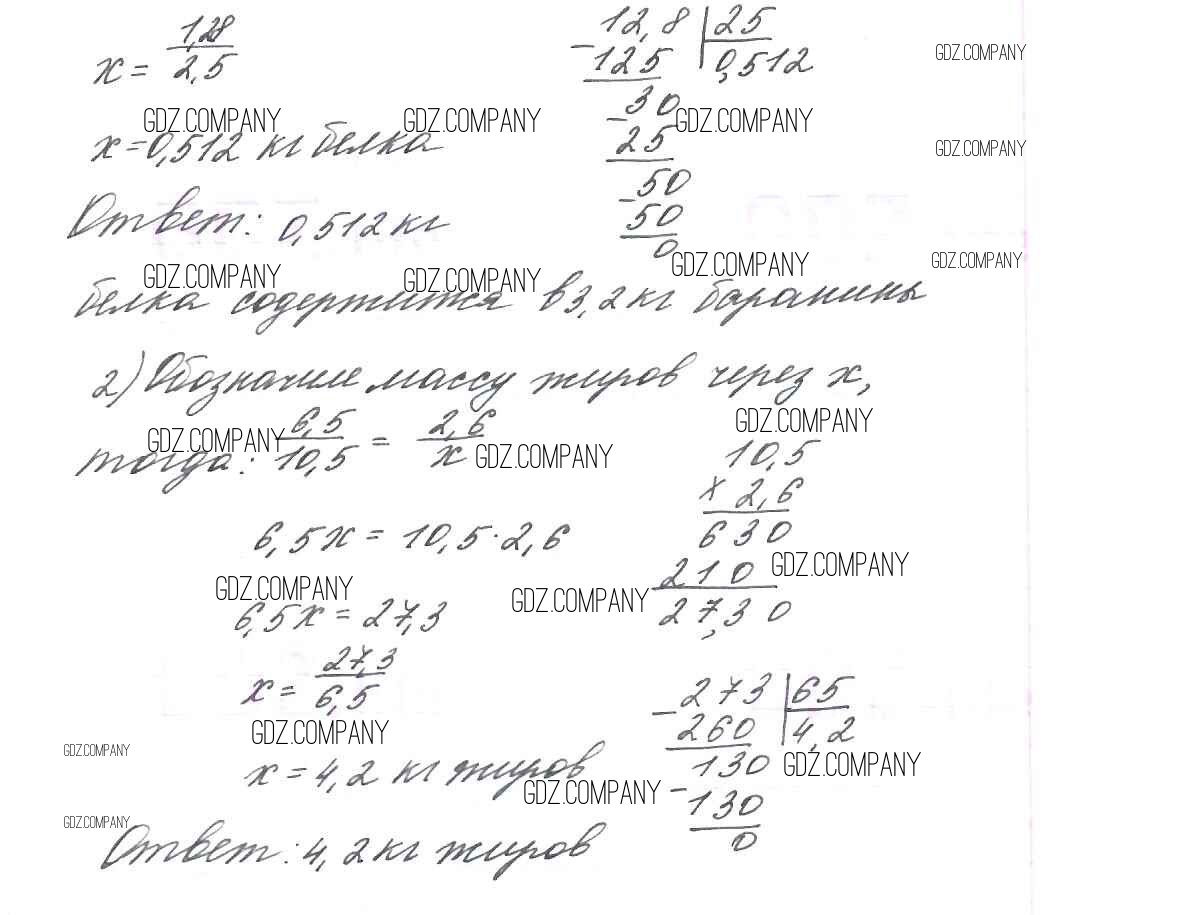 x = 1,28/2,5
12,8 | 25
- 125 | 0,512
GDZ.COMPANY
- 30
25
GDZ.COMPANY GDZ.COMPANY GDZ.COMPANY
x = 0,512 кг белка
GDZ.COMPANY
- 50
50
0
Ответ: 0,512 кг
GDZ.COMPANY GDZ.COMPANY GDZ.COMPANY GDZ.COMPANY
белка содержится в 3,2 кг баранины
2) Обозначим массу жиров через x,
GDZ.COMPANY GDZ.COMPANY GDZ.COMPANY
тогда: 6,5/10,5 = 2,6/x
10,5
x 2,6
630
210
27,30
6,5x = 10,5·2,6
GDZ.COMPANY GDZ.COMPANY GDZ.COMPANY
6,5x = 27,3
x = 27,3/6,5
- 273 | 65
260 | 4,2
- 130
130
0
GDZ.COMPANY
GDZ.COMPANY
x = 4,2 кг жиров
GDZ.COMPANY GDZ.COMPANY
GDZ.COMPANY
Ответ: 4,2 кг жиров